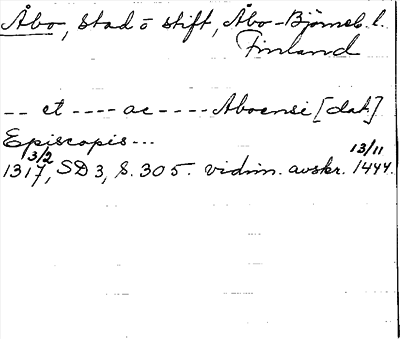 Åbo, Stad o stift, Åbo-Björneb. l.
Finland
-- et ---- ac ---- Aboensi [dat.]
Episcopis...
1317 3/2, SD 3, S. 305. vidim. avskr. 13/11 1444.